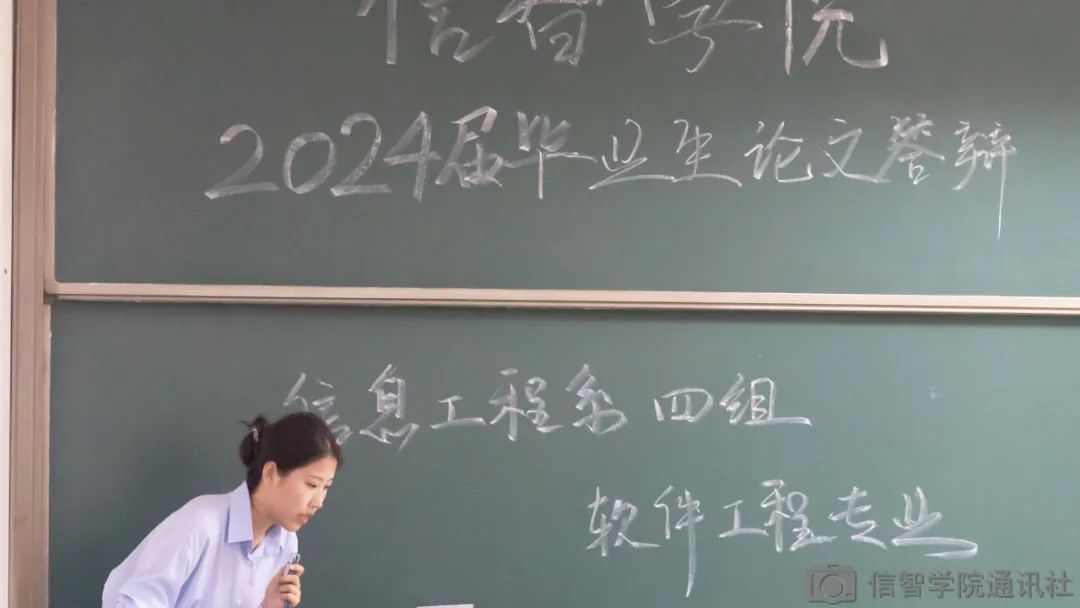 信智学院
2024届毕业生论文答辩
信息工程系四组
软件工程专业
信智学院通讯社